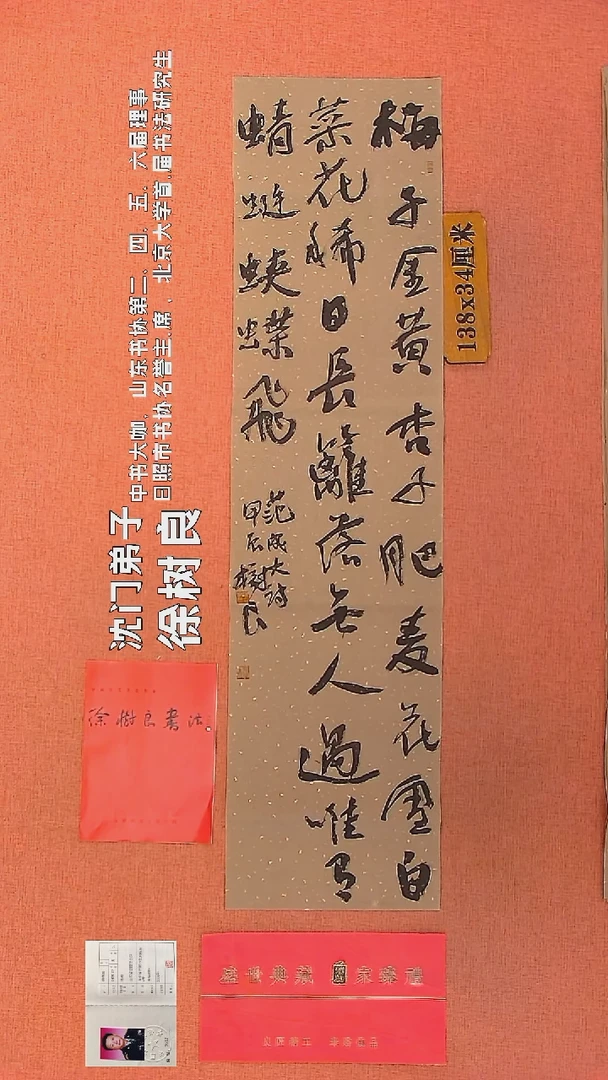 梅子金黄杏子肥麦花雪白
菜花稀日長籬落無人過唯有
蜻蜓蛺蝶飛
范成大诗
甲辰樹良
138x34厘米
沈门弟子
徐树良
中书大咖、山东书协第二、四、五、六届理事
日照市书协名誉主席、北京大学首届书法研究生
徐樹良書法
盛世典藏 國家樂禮